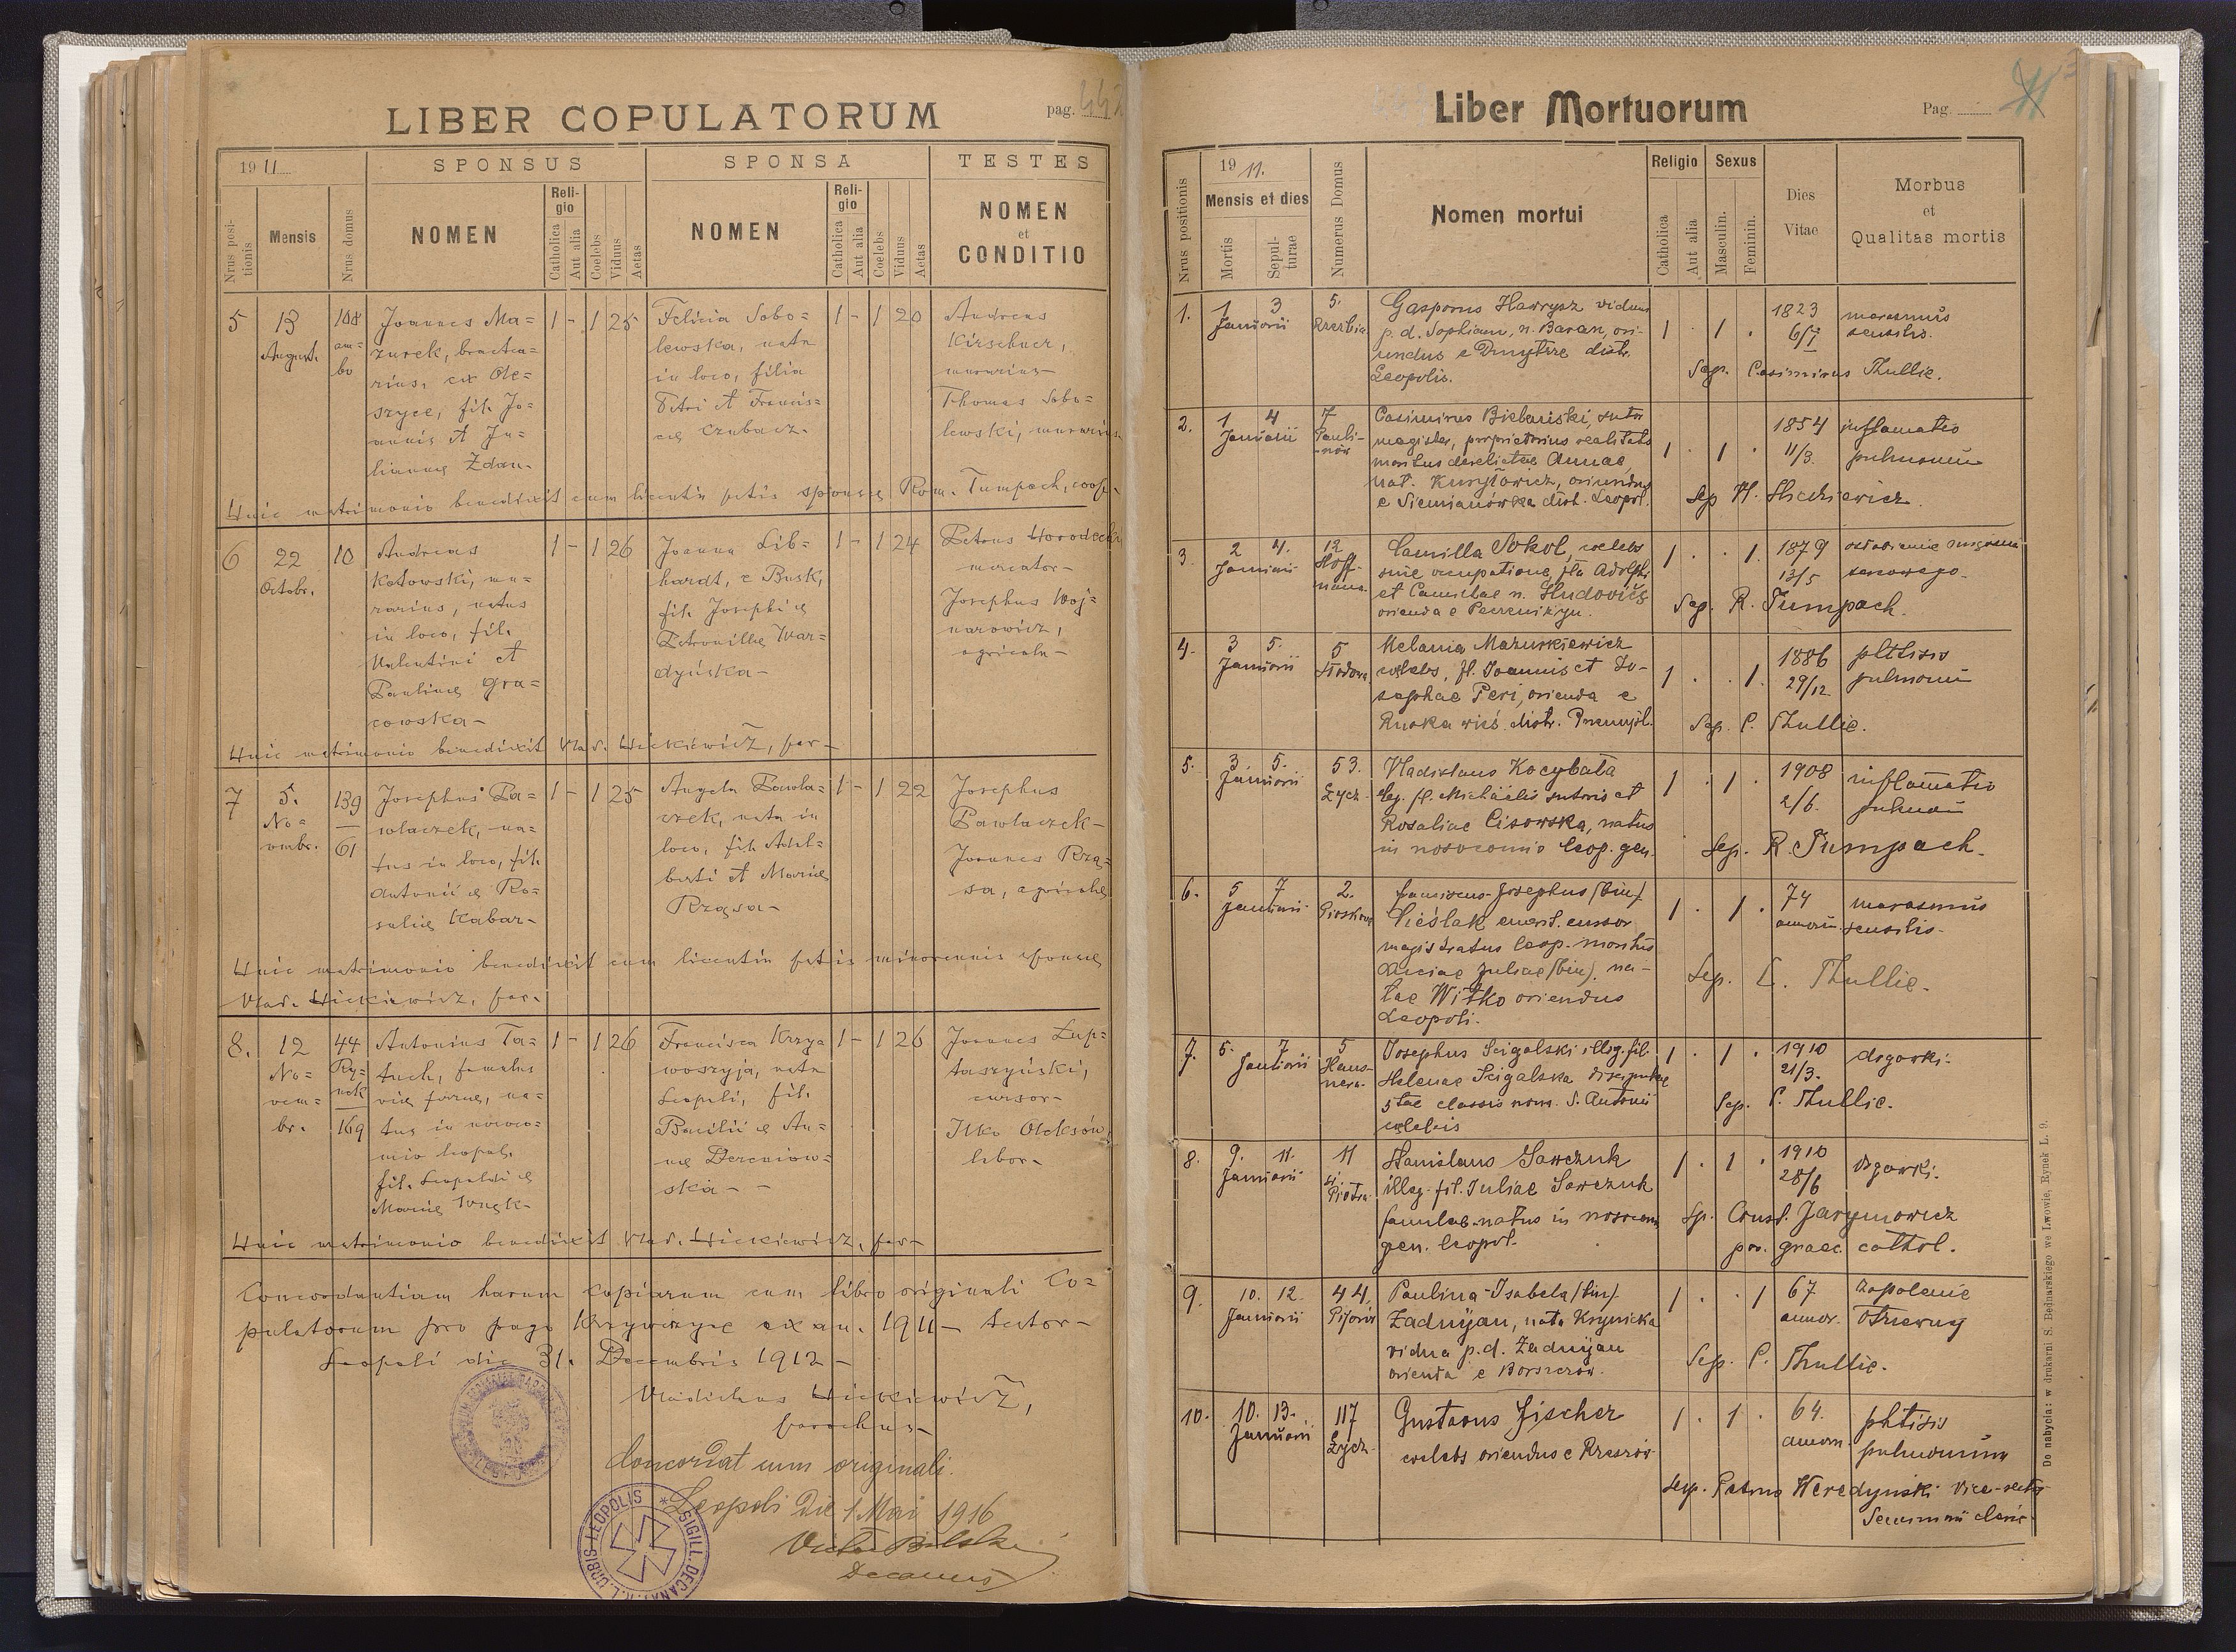 LIBER COPULATORUM
pag. 442
1911
SPONSUS
SPONSA
TESTES
Nrus positionis
Mensis
Nrus domus
NOMEN
Religio
Catholica
Aut alia
Coelebs
Viduus
Aetas
NOMEN
Religio
Catholica
Aut alia
Coelebs
Viduus
Aetas
NOMEN
et
CONDITIO
5
13
August.
108
am=
bo
Joannes Ma=
zurek, bractea=
rius, ex Ole=
szyce, fil. Jo=
annis et Ju=
liannę Żdan-
1 - 1 25
Felicia Sobo=
lewska, nata
in loco, filia
Petri et Francis=
cę Czubacz-
1 - 1 20
Andreas
Kirschner,
murarius-
Thomas Sobo=
lewski, murarius
Huic matrimonio benedixit cum licentia patis sponsę Rom. Tumpach, coop-
6
22
Octobr.
10
Andreas
Kotowski, mu=
rarius, natus
in loco, fil.
Valentini et
Paulinę Gra=
cowska-
1 - 1 26
Joanna Lib=
hardt, e Busk,
fil. Josephi &
Petronillę War=
dyńska-
1 - 1 24
Petrus Horodecki
mercator-
Josephus Woj=
narowicz,
agricola-
Huic matrimonio benedixit Vlad. Hickiewicz, par-
7
5.
No=
vembr.
139
61
Josephus Pa=
wlaczek, na=
tus in loco, fil.
Antonii & Ro=
salię Kabar-
1 - 1 25
Angela Pawla=
czek, nata in
loco, fil. Adal=
berti et Marię
Rząsa-
1 - 1 22
Josephus
Pawlaczek-
Joannes Rzą=
sa, agricolę
Huic matrimonio benedixit cum licentia patis minorennis sponsę
Vlad. Hickiewicz, par.
8.
12
No=
vem=
br.
44
Ry=
nek
169
Antonius Ta=
tuch, famulus
vię ferreę, na=
tus in nosoco=
mio leopol.
fil. Leopoldi &
Marię Wnęk-
1 - 1 26
Francisca Krzy=
woszyja, nata
Leopoli, fil.
Bacilii & An=
nę Dereniow=
ska--
1 - 1 26
Joannes Łup=
taszyński,
cursor-
Ilko Oleksów,
labor-
Huic matrimonio benedixit Vlad. Hickiewicz, par-
Concordantiam harum copiarum cum libro originali Co=
pulatorum pro pago Krzywczyce ex an. 1911- testor-
Leopoli die 31. Decembris 1912-
Vladislaus Hickiewicz,
parochus-
Concordat cum originali.
Leopoli die 1 Mai 1916
Decanus
SIGILL. DECANAT. R.L. URBIS LEOPOLIS
Liber Mortuorum
Pag.
Nrus positionis
1911.
Mensis et dies
Mortis
Sepulturae
Numerus Domus
Nomen mortui
Religio
Catholica
Aut alia
Sexus
Masculin.
Feminin.
Dies
Vitae
Morbus
et
Qualitas mortis
1.
1 3
Januarii
5.
Rzeźbia
Gasparus Hawrysz viduus
p. d. Sophiam, n. Baran, ori-
undus e Dmytrze distr.
Leopolis.
1 . 1 .
1823
6/I
marasmus
senilis.
Sep. Casimirus Thullie.
2.
1 4
Januarii
7
Pauli-
nów
Casimirus Bielański, sutor
magister, proprietarius realitatis
maritus derelictae Annae,
nat. Kuryłowicz, oriundus
e Siemianówka distr. Leopol.
1 . 1 .
1854
11/3.
inflamatio
pulmonum
Sep H. Hickiewicz.
3.
2 4.
Januarii
12
Hoff-
mana
Camilla Sokol, coelebs
sine occupatione, fla Adolphi
et Camillae n. Hudović
orienda e
1 . . 1.
1879
13/5
osłabienie mięśnia
sercowego.
Sep. R. Tumpach.
4.
3 5.
Januarii
5
Melania Mazurkiewicz
coelebs, fl. Joannis et Jo-
sephae Peri, orienda e
Ruska wieś distr. Przemyśl.
1 . . 1.
1886
29/12.
phtisis
pulmonum
Sep. C. Thullie.
5.
3 5.
Januarii
53.
Łycz.
Vladislaus Kocybała
leg. fl. Michaelis sutoris et
Rosaliae Lisowska, natus
in nosocomio leop. gen.
1 . 1 .
1908
2/6.
inflamatio
pulmon
Sep. R. Tumpach.
6.
5 7
Januarii
2.
Piaskowa
Franciscus-Josephus (bin.)
Cieślak emerit. cursor
magistratus leop. maritus
Luciae Juliae (bin). na-
tae Witko oriendus
Leopoli.
1 . 1 .
74
annorum.
marasmus
senilis.
Sep. C. Thullie.
7.
5. 7
Januarii
5
Haus-
nera.
Josephus Scigalski illeg. fil.
Helenae Scigalska discipulae
5tae classis nom. S. Antonii
coelebis
1 . 1 .
1910
21/3.
drgawki.
Sep. C. Thullie.
8.
9. 11.
Januarii
11
św.
Piotra
Stanislaus Sawczuk
illeg. fil. Juliae Sawczuk
famulae natus in nosocom
gen. leopol.
1 . 1 .
1910
28/6
drgawki.
Sp. Const. Jarymowicz
par. graec. cathol.
9.
10. 12.
Januarii
44.
Pijarów
Paulina-Isabela (bin).
Zadnijau, nata Krynicka
vidua p. d. Zadnijau
orienda e Borszczów.
1 . . 1
67
annor.
zapalenie
otrzewny
Sep. C. Thullie.
10.
10. 13.
Januarii
117
Łycz.
Gustavus Fischer
coelebs oriendus e Rzeszów
1 . 1 .
64.
annor.
phtisis
pulmonum
Sep. Petrus Weredyński vice-rector
Seminarii cleric.
Do nabycia: w drukarni S. Bednarskiego we Lwowie, Rynek L. 9.